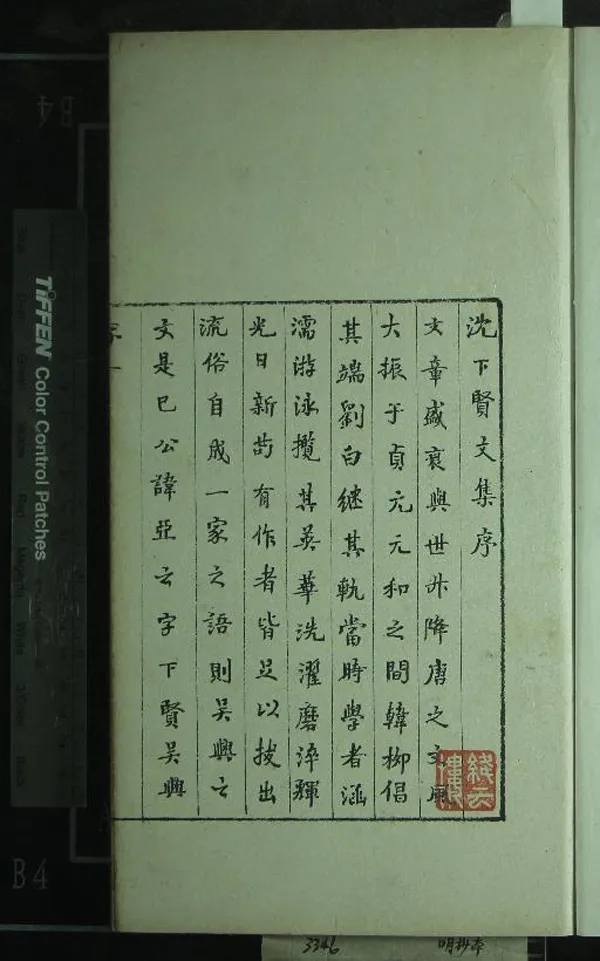 沈下賢文集序
文章盛衰與世升降唐之文風
大振于貞元元和之間韓柳倡
其端劉白繼其軌當時學者涵
濡游泳攬其英華洗濯磨淬輝
光日新苟有作者皆足以拔出
流俗自成一家之語則吴興之
文是已公諱亞之字下賢吴興
序一
絳雲樓
TIFFEN Color Control Patches
B4
B4
3346
明抄本